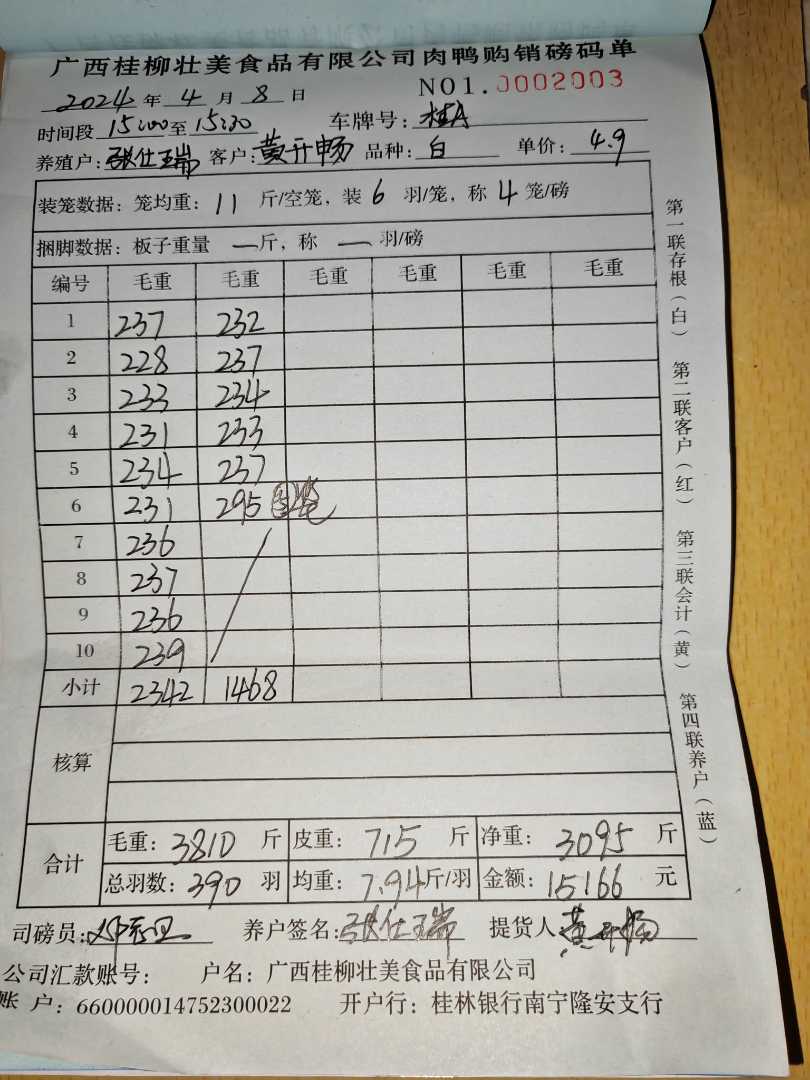 广西桂柳壮美食品有限公司肉鸭购销磅码单
2024年4月8日 NO1.0002003
时间段15:00至15:30 车牌号:桂A
养殖户:张仕瑞 客户:黄开畅 品种:白 单价:4.9
装笼数据:笼均重:11斤/空笼,装6羽/笼,称4笼/磅
捆脚数据:板子重量 — 斤,称 — 羽/磅
编号 毛重 毛重 毛重 毛重 毛重 毛重
1 237 232
2 228 237
3 233 234
4 231 233
5 234 237
6 231 295
7 236
8 237
9 236
10 239
小计 2342 1468
核算
合计
毛重:3810斤 皮重:715斤 净重:3095斤
总羽数:390羽 均重:7.94斤/羽 金额:15166元
司磅员: 养户签名:张仕瑞 提货人 黄开畅
公司汇款账号: 户名:广西桂柳壮美食品有限公司
账 户:660000014752300022 开户行:桂林银行南宁隆安支行
第一联存根(白) 第二联客户(红) 第三联会计(黄) 第四联养户(蓝)